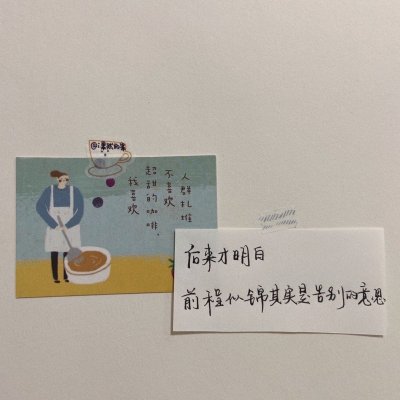 人群扎堆
不喜欢
超甜的咖啡，
我喜欢
后来才明白
前程似锦其实是告别的意思